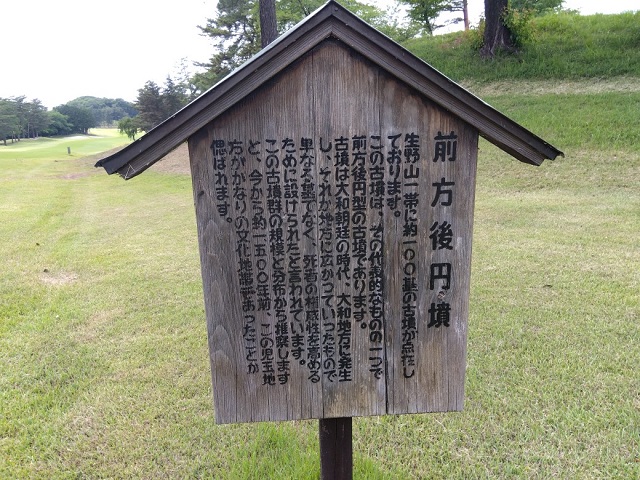 前方後円墳
生野山一帯に約一〇〇基の古墳が点在し
ております。
この古墳は、その代表的なものの一つで
前方後円型の古墳であります。
古墳は大和朝廷の時代、大和地方に発生
し、それが地方に広がつていつたもので
単なる墓でなく、死者の権威性を高める
ために設けられたと言われています。
この古墳群の規模と分布から推察します
と、今から約一五〇〇年前、この児玉地
方がかなりの文化地帯であつたことが
偲ばれます。